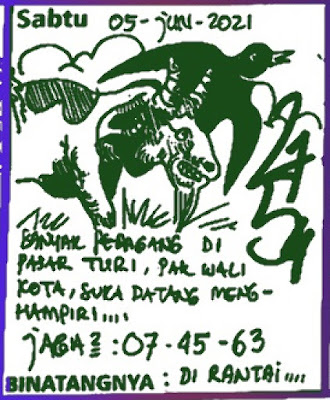 Sabtu 05-juni-2021
BANYAK PEDAGANG DI
PASAR TURI, PAK WALI
KOTA, SUKA DATANG MENG-
HAMPIRI....
jAGA² : 07-45-63
BINATANGNYA : DI RANTAI....